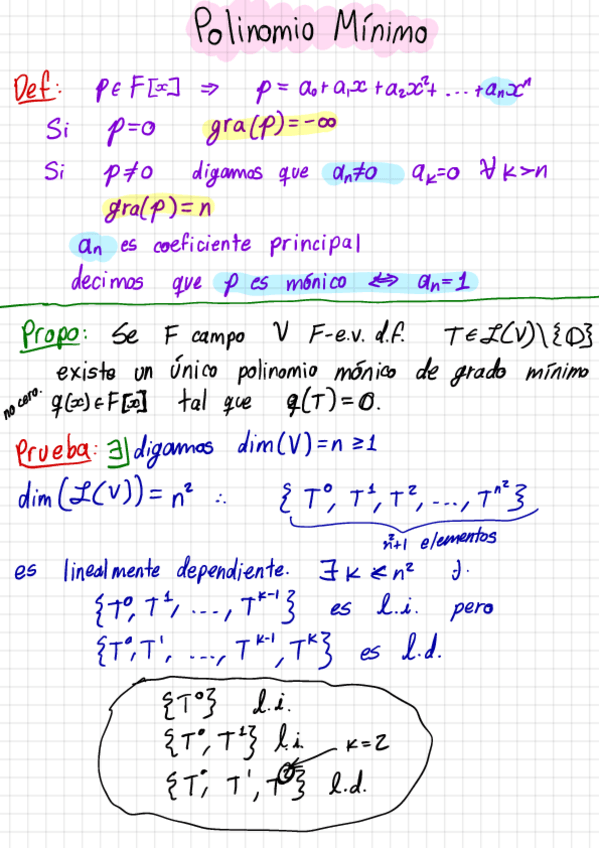 Polinomio Mínimo
Def: p ∈ F[x] ⇒ p = a₀ + a₁x + a₂x² + ... + aₙxⁿ
Si p=0 gra(p) = -∞
Si p≠0 digamos que aₙ≠0 aₖ=0 ∀ k>n
gra(p) = n
aₙ es coeficiente principal
decimos que p es mónico ⇔ aₙ=1
Propo: Se F campo V F-e.v. d.f. T∈ℒ(V)\{0}
existe un único polinomio mónico de grado mínimo
no cero. q(x)∈F[x] tal que q(T)=0.
Prueba: ∃] digamos dim(V)=n≥1
dim(ℒ(V))=n² ∴ {T⁰, T¹, T², ..., Tⁿ²}
n²+1 elementos
es linealmente dependiente. ∃ k ≤ n² ∋.
{T⁰, T¹, ..., Tᵏ⁻¹} es l.i. pero
{T⁰, T¹, ..., Tᵏ⁻¹, Tᵏ} es l.d.
{T⁰} l.i.
{T⁰, T¹} l.i. k=2
{T⁰, T¹, T²} l.d.